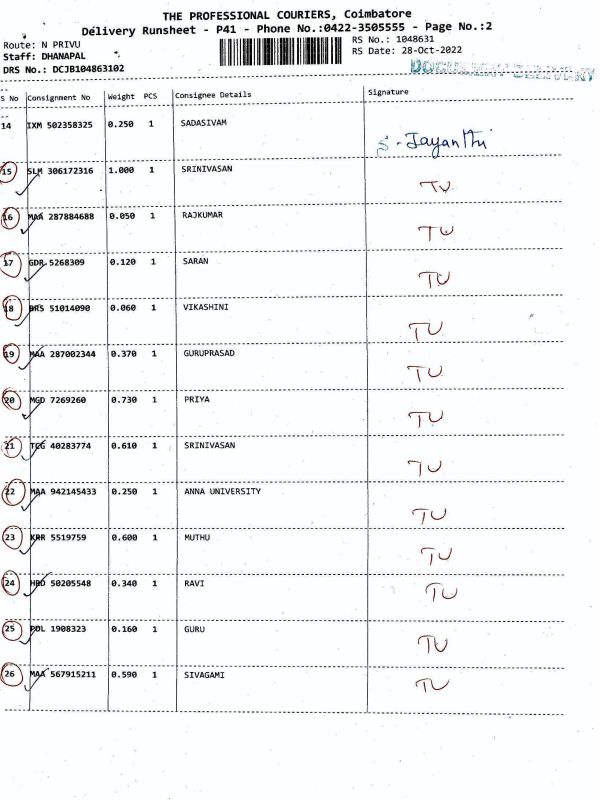 THE PROFESSIONAL COURIERS, Coimbatore
Delivery Runsheet - P41 - Phone No.:0422-3505555 - Page No.:2
Route: N PRIVU
Staff: DHANAPAL
DRS No.: DCJB104863102
RS No.: 1048631
RS Date: 28-Oct-2022
S No Consignment No Weight PCS Consignee Details Signature
14 IXM 502358325 0.250 1 SADASIVAM S. Jayanthi
15 SLM 306172316 1.000 1 SRINIVASAN TU
16 MAA 287884688 0.050 1 RAJKUMAR TU
17 GDR 5268309 0.120 1 SARAN TU
18 BRS 51014090 0.060 1 VIKASHINI TU
19 MAA 287002344 0.370 1 GURUPRASAD TU
20 MGD 7269260 0.730 1 PRIYA TU
21 TCG 40283774 0.610 1 SRINIVASAN TU
22 MAA 942145433 0.250 1 ANNA UNIVERSITY TU
23 KRR 5519759 0.600 1 MUTHU TU
24 HBD 50205548 0.340 1 RAVI TU
25 POL 1908323 0.160 1 GURU TU
26 MAA 567915211 0.590 1 SIVAGAMI TU